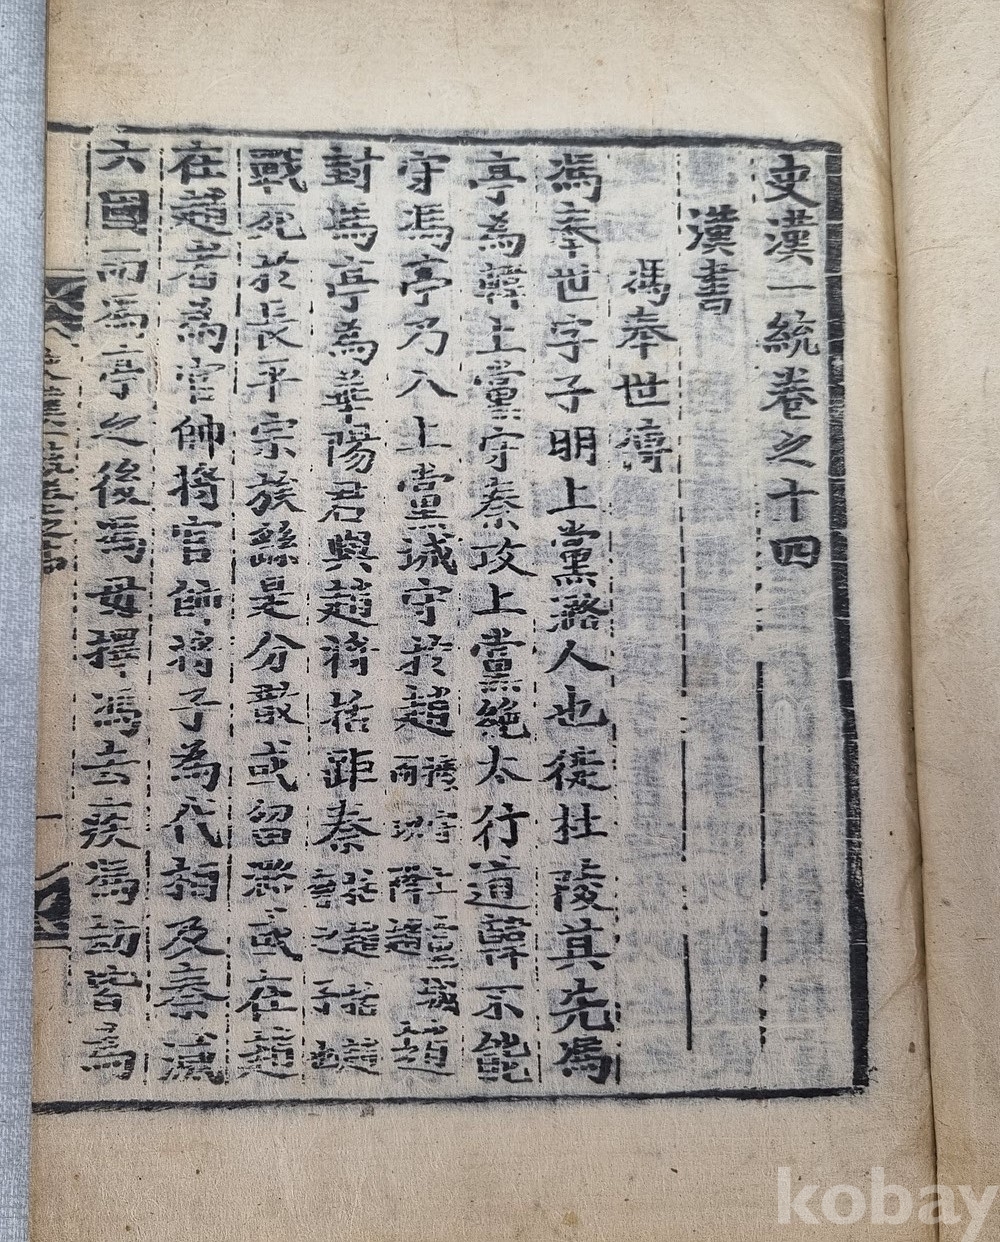 史漢一統卷之十四
漢書
馮奉世傳
馮奉世字子明上黨潞人也徙杜陵其先馮
亭為韓上黨守秦攻上黨絶太行道韓不能
守馮亭乃入上黨城守於趙據守上黨城而降趙趙
封馮亭為華陽君與趙將括距秦
戰死於長平宗族繇是分散或留潞或在趙
在趙者為官帥將官帥將子為代相及秦滅
六國而馮亭之後馮毋擇馮去疾馮劫皆為
kobay